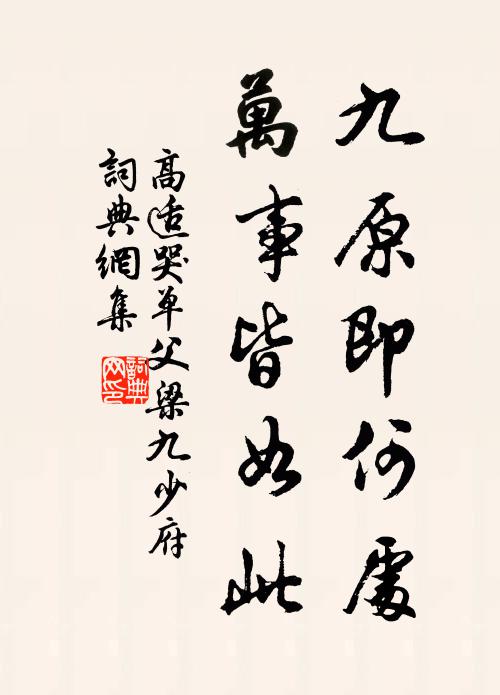 九原即何處
萬事皆如此
高适哭單父梁九少府
詞典網集
詞典网印